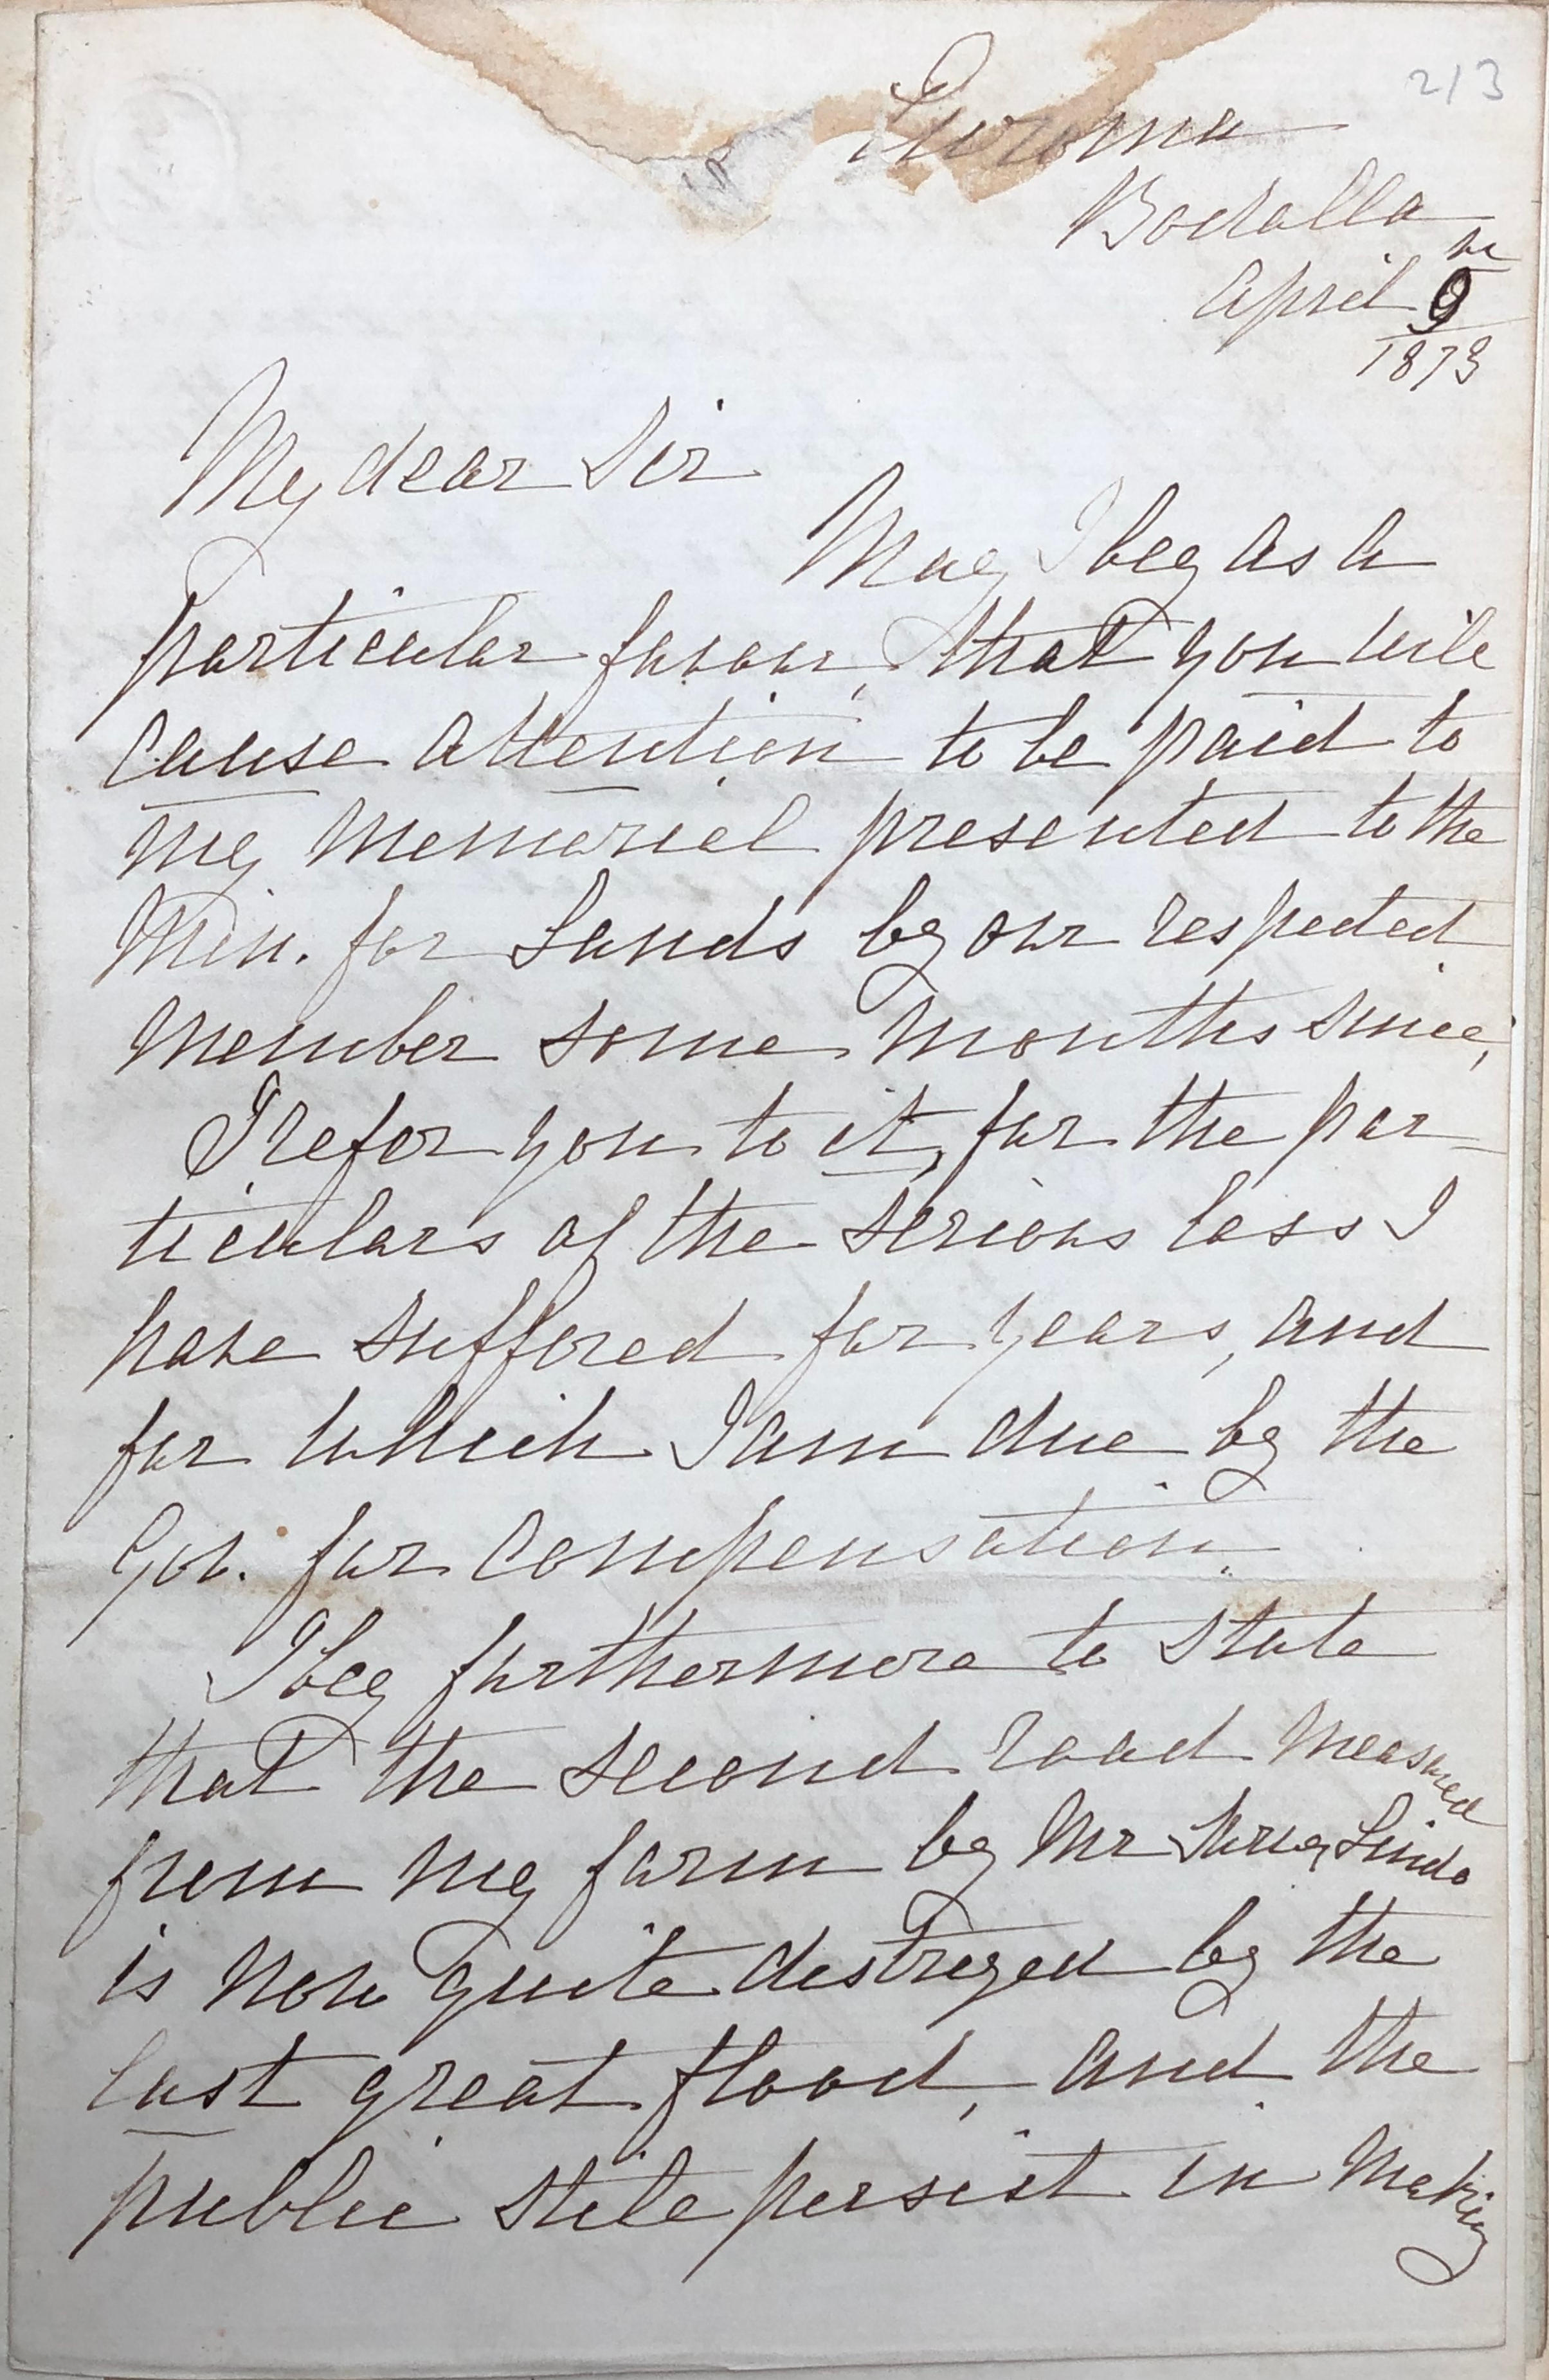 213
Euroma
Bodalla
April 9th
1873
My dear Sir
May I beg as a
particular favour, that you will
cause attention to be paid to
my Memorial presented to the
Min. for Lands by our respected
Member some months since,
I refer you to it, for the par-
ticulars of the serious loss I
have suffered for years, and
for which I am due by the
Gov. for Compensation.
I beg furthermore to state
that the second road measured
from my farm by Mr Lindo
is now quite destroyed by the
last great flood, and the
public still persist in making